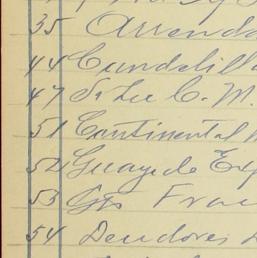 35 Arrenda
44 Candelill
47 Su Lee C. M.
51 Continental
52 Guayule Ex
53 Gts Fra
54 Deudores